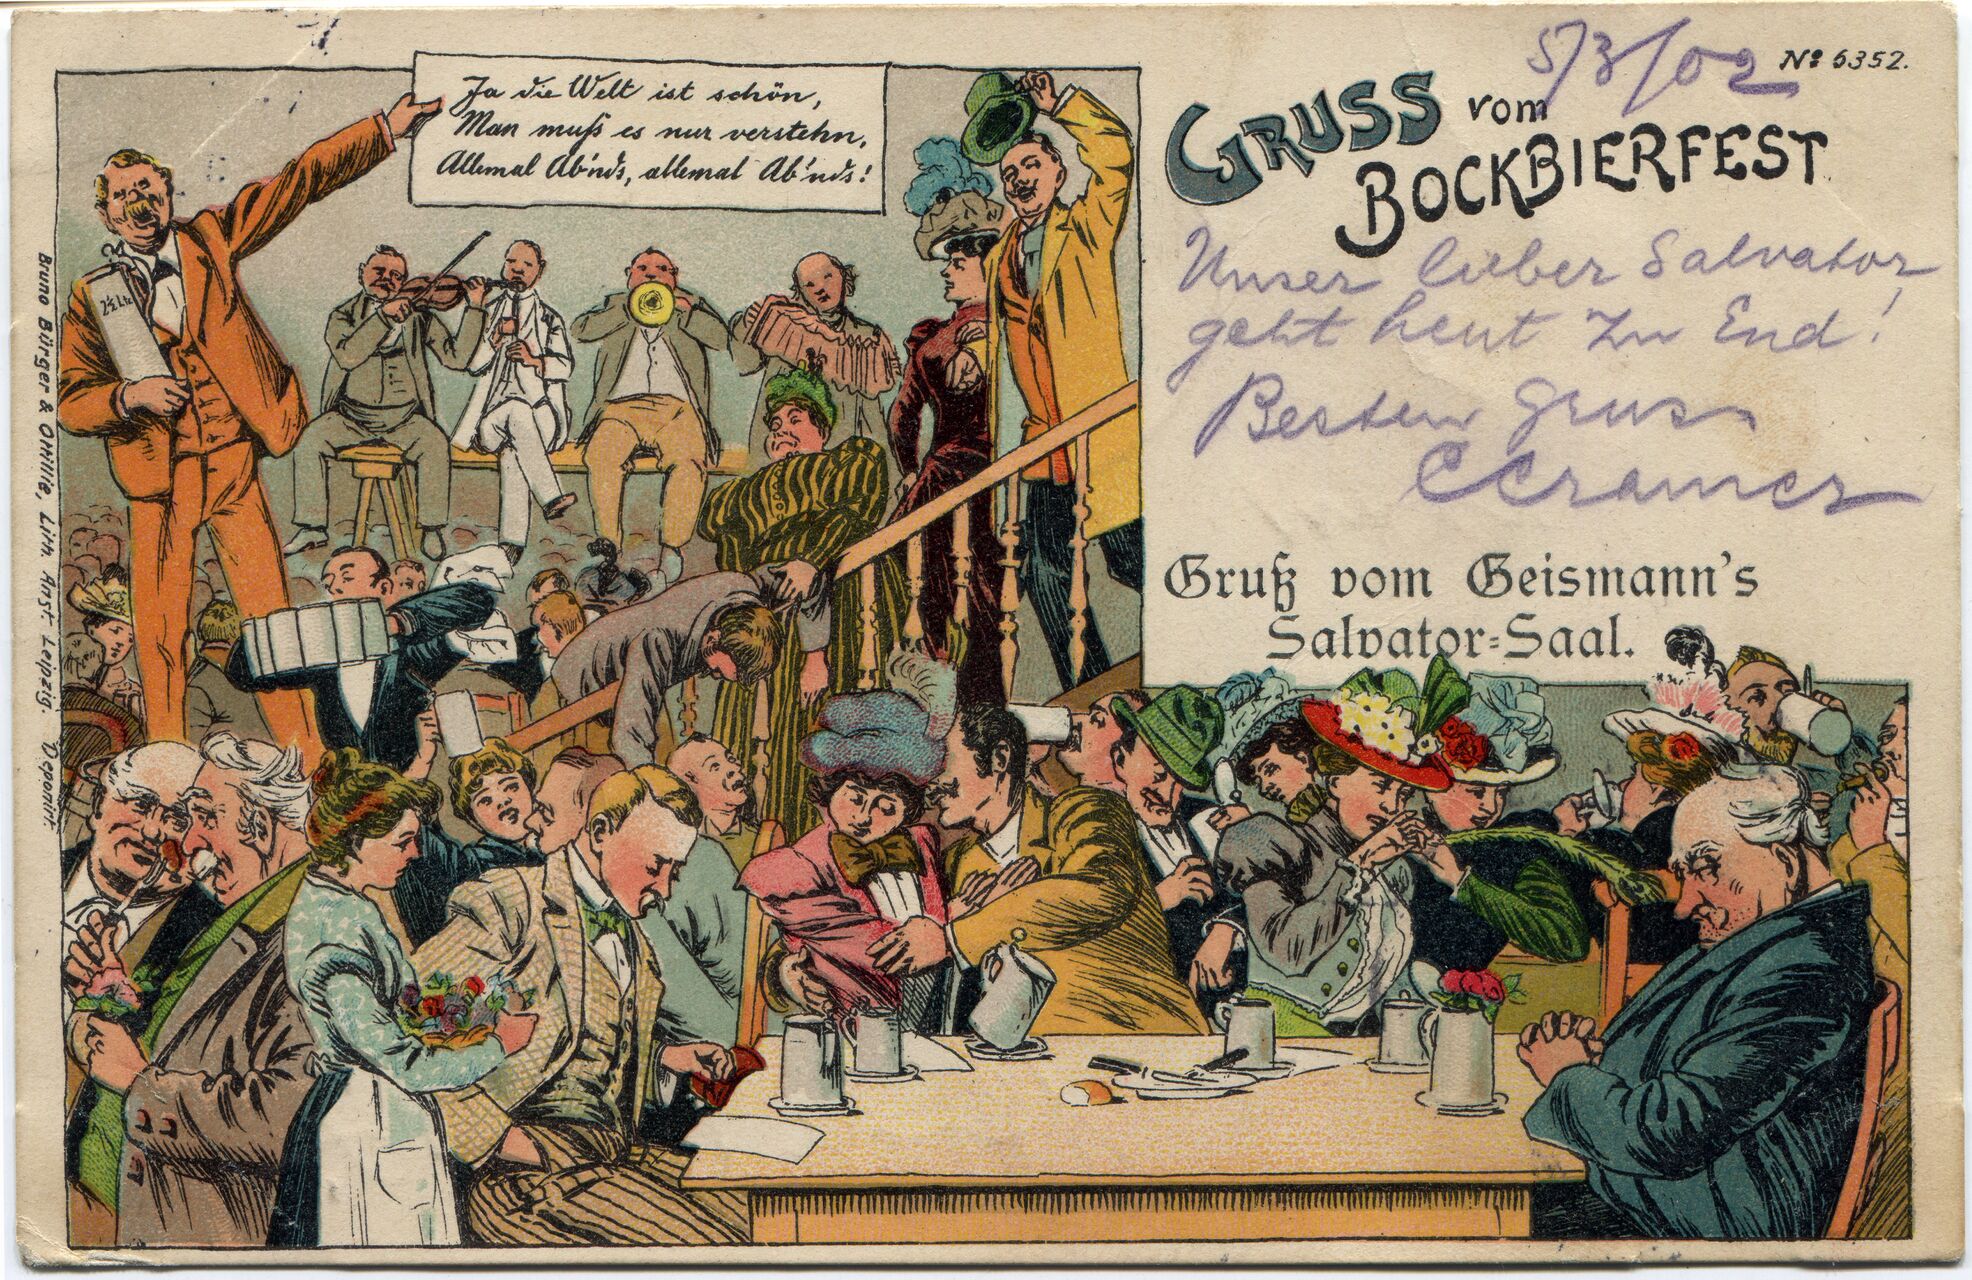 Ja die Welt ist schön,
Man muß es nur verstehn,
Allemal Ab'nds, allemal Ab'nds!
2½ Ltr.
5/3/02
No 6352.
GRUSS vom
BOCKBIERFEST
Unser lieber Salvator
geht heut zu End!
Besten Gruss
CCramer
Gruß vom Geismann's
Salvator=Saal.
Bruno Bürger & Ottillie, Lith. Anst. Leipzig. Deponirt.